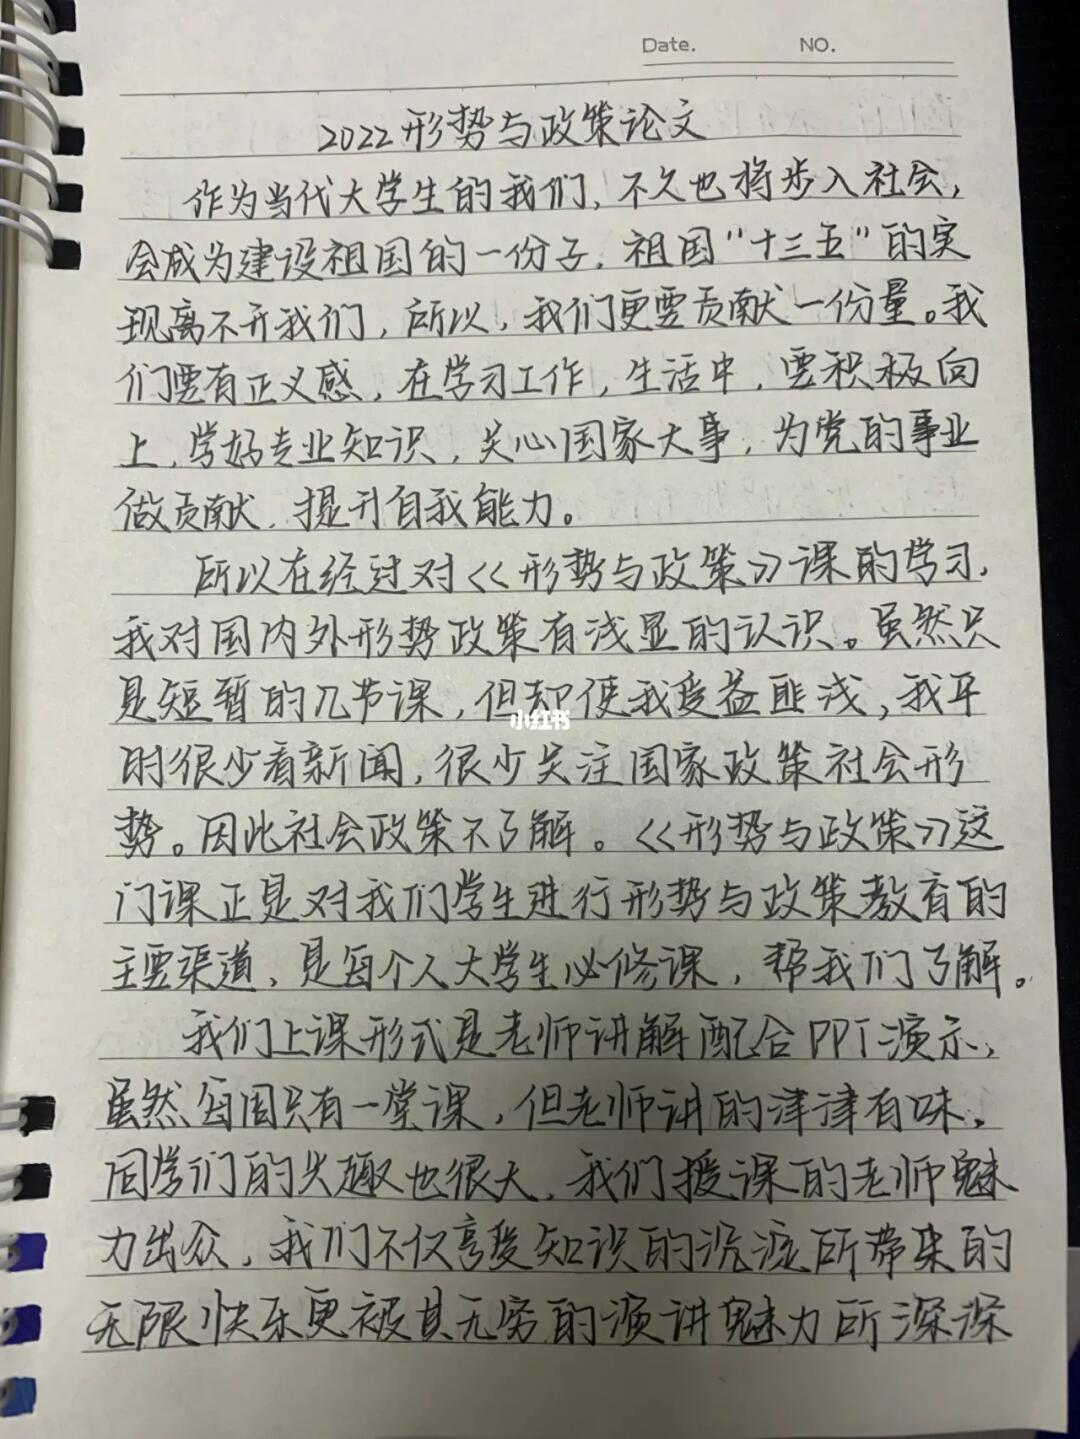 Date. NO.
2022形势与政策论文
作为当代大学生的我们,不久也将步入社会,
会成为建设祖国的一份子.祖国"十三五"的实
现离不开我们,所以,我们更要贡献一份量。我
们要有正义感,在学习工作,生活中,要积极向
上,学好专业知识,关心国家大事,为党的事业
做贡献,提升自我能力。
所以在经过对《形势与政策》课的学习,
我对国内外形势政策有浅显的认识。虽然只
是短暂的几节课,但却使我受益匪浅,我平
时很少看新闻,很少关注国家政策社会形
势。因此社会政策不了解。《形势与政策》这
门课正是对我们学生进行形势与政策教育的
主要渠道,是每个人大学生必修课,帮我们了解。
我们上课形式是老师讲解配合PPT演示,
虽然每周只有一堂课,但老师讲的津津有味,
同学们的兴趣也很大,我们授课的老师魅
力出众,我们不仅享受知识的沉淀所带来的
无限快乐更被其无穷的演讲魅力所深深
小红书